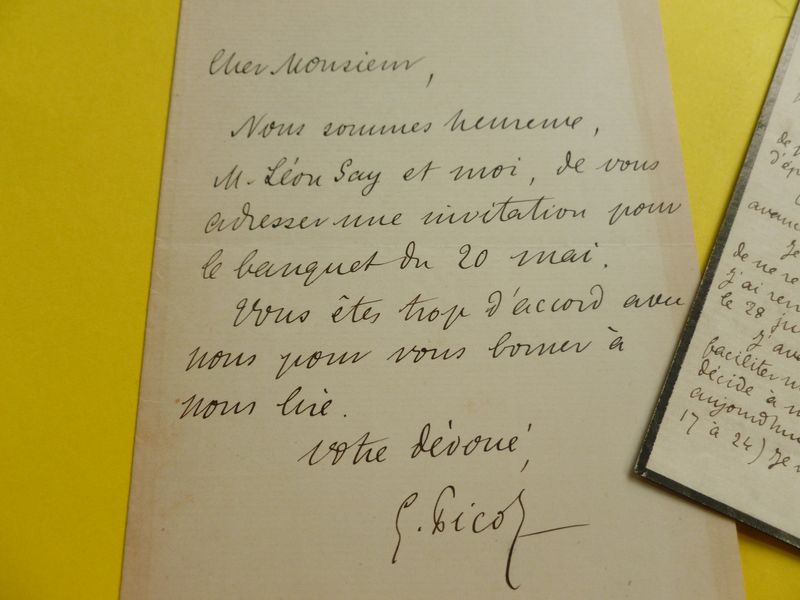 Cher Monsieur,
Nous sommes heureux,
M. Léon Say et moi, de vous
adresser une invitation pour
le banquet du 20 mai.
Vous êtes trop d'accord avec
nous pour vous borner à
nous lire.
votre dévoué,
G. Picot
d'ép
avanc
Je
de ne re
J'ai ren
le 28 ju
J'ava
faciliter
décide à
aujourd'hui
17 à 24) Je